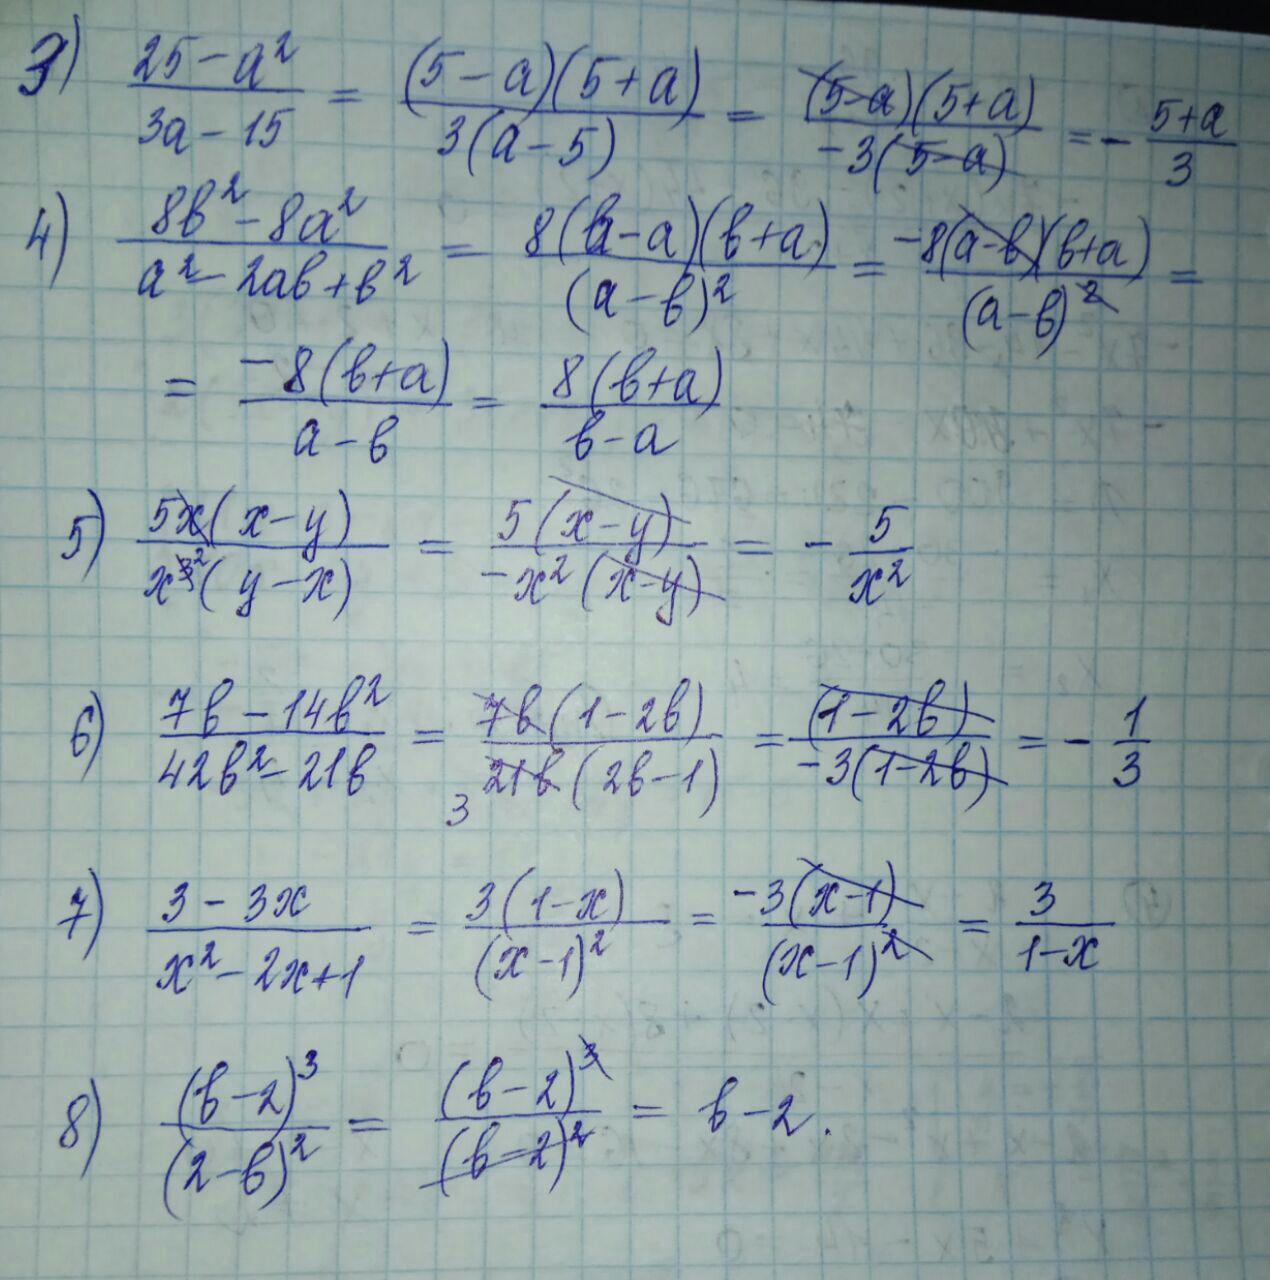 3) (25-a²)/(3a-15) = ((5-a)(5+a))/(3(a-5)) = ((5-a)(5+a))/(-3(5-a)) = - (5+a)/3
4) (8b²-8a²)/(a²-2ab+b²) = (8(b-a)(b+a))/((a-b)²) = (-8(a-b)(b+a))/((a-b)²) =
= (-8(b+a))/(a-b) = (8(b+a))/(b-a)
5) (5x(x-y))/(x³ ²(y-x)) = (5(x-y))/(-x²(x-y)) = - 5/x²
6) (7b-14b²)/(42b²-21b) = (7b(1-2b))/(3 21b(2b-1)) = (1-2b)/(-3(1-2b)) = - 1/3
7) (3-3x)/(x²-2x+1) = (3(1-x))/((x-1)²) = (-3(x-1))/((x-1)²) = 3/(1-x)
8) ((b-2)³)/((2-b)²) = ((b-2)³)/((b-2)²) = b-2.